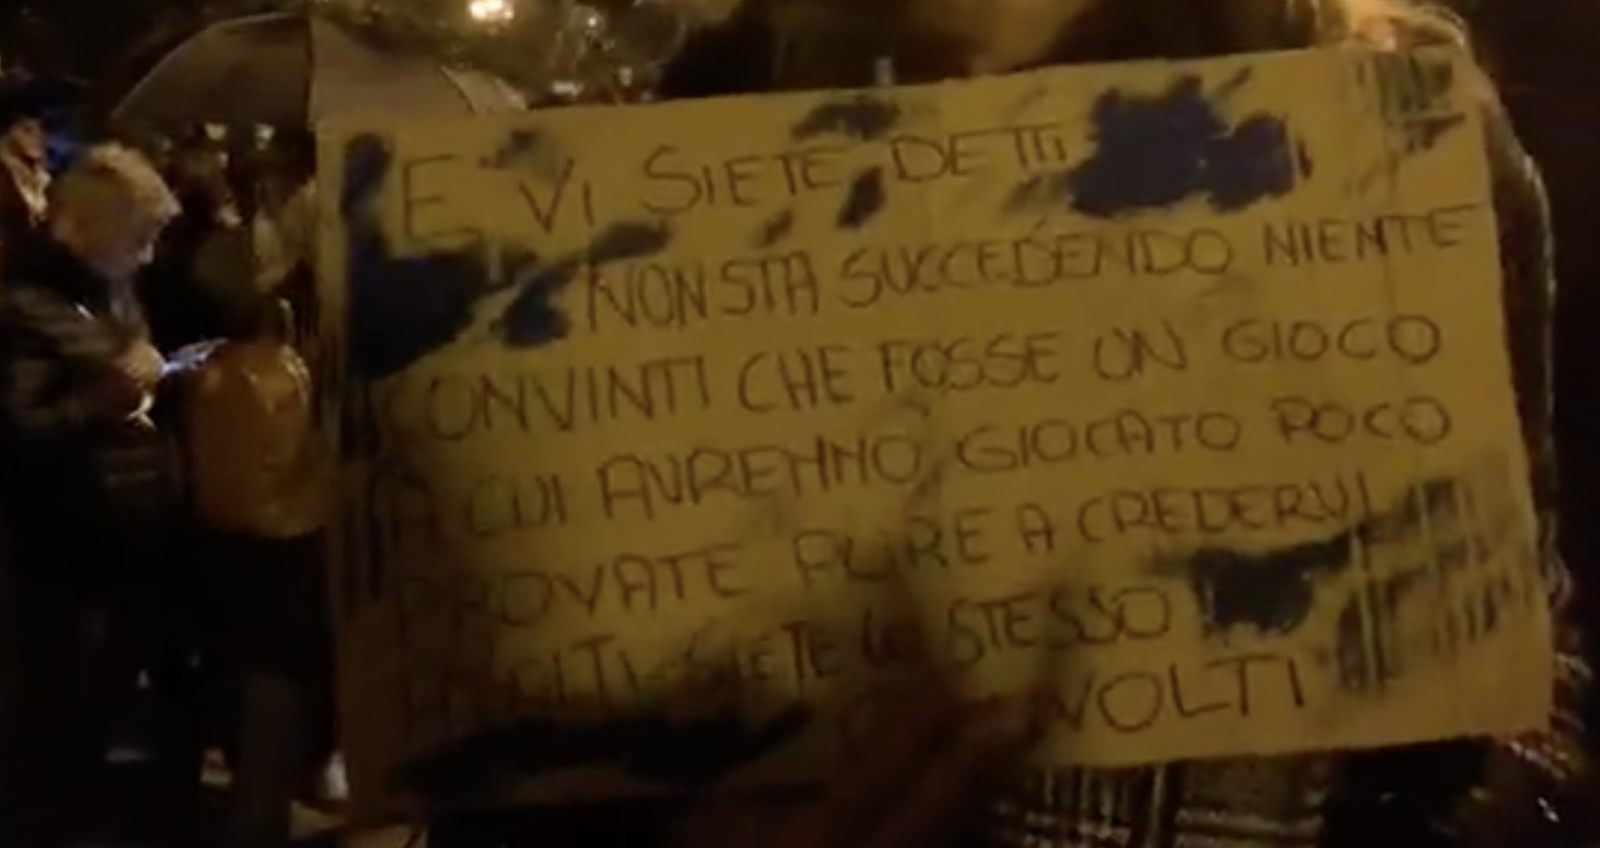 E VI SIETE DETTI
NON STA SUCCEDENDO NIENTE
CONVINTI CHE FOSSE UN GIOCO
A CUI AVREMMO GIOCATO POCO
PROVATE PURE A CREDERVI
SIETE LO STESSO
VOLTI